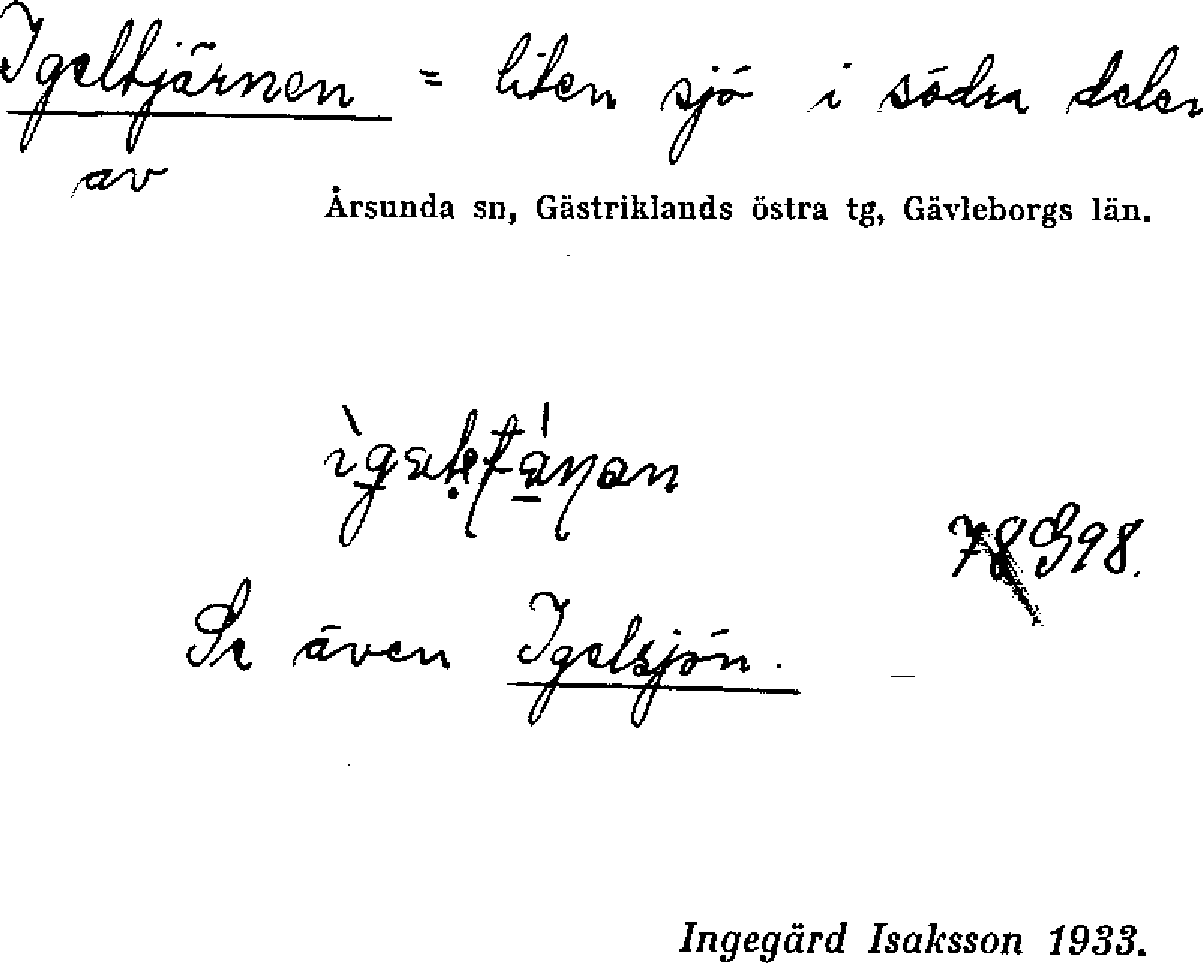 Igeltjärnen = liten sjö i södra delen
av
Årsunda sn, Gästriklands östra tg, Gävleborgs län.
S98.
Se även Igelsjön.
Ingegärd Isaksson 1933.